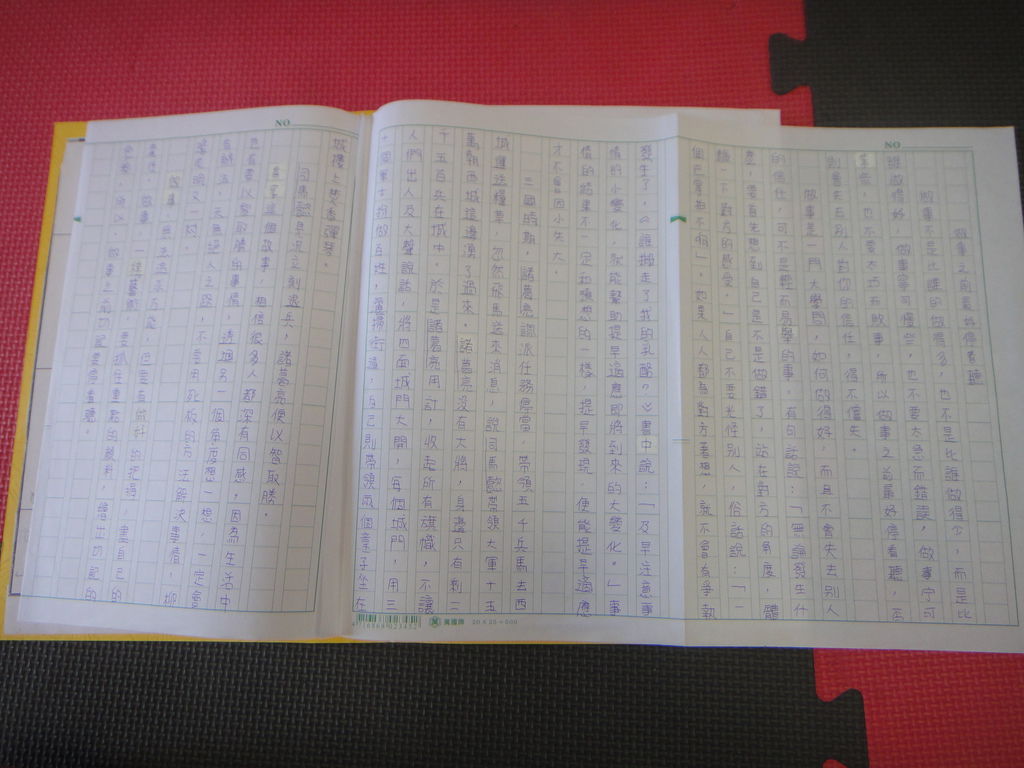 NO
做事之前最好停看聽
做事不是比誰的做得多，也不是比誰做得少，而是比
誰做得好。做事寧可慢些，也不要太急而錯誤，做事寧可
笨些，也不要太巧而敗事。所以做事之前最好停看聽，否
則會失去別人對你的信任，得不償失。
做事是一門大學問，如何做得好，而且不會失去別人
的信任，可不是輕而易舉的事。有句話說：「無論發生什
麼，要首先想到自己是不是做錯了，站在對方的角度，體
驗一下對方的感受。」自己不要光怪別人，俗話說：「一
個巴掌拍不響」，如果人人都為對方著想，就不會有爭執
發生了，《誰搬走了我的乳酪？》書中說：「及早注意事
情的小變化，就能幫助提早適應即將到來的大變化。」事
情的結果不一定和構想的一樣，提早發現，便能提早適應
才不會因小失大。
三國時期，諸葛亮調派任務停當，帶領五千兵馬去西
城運送糧草，忽然飛馬送來消息，說司馬懿帶領大軍十五
萬朝西城這邊湧了過來。諸葛亮沒有大將，身邊只有剩二
千五百兵在城中。於是諸葛亮用計，收起所有旗幟，不讓
人們出入及大聲說話，將四面城門大開，每個城門，用三
十個軍士扮做百姓，灑掃街道，自己則帶領兩個童子坐在
NO
城樓上焚香彈琴。
司馬懿見況立刻退兵，諸葛亮便以智取勝。
看享這個故事，相信很多人都深有同感，因為生活中
也有要以智取勝的事情，透過另一個角度想一想，一定會
有辦法，天無絕人之路，不要用死板的方法解決事情，柳
暗花明又一村。
做事
做事
要抓住重點
所以，做事之前切記要停看聽。
20 X 25 = 500